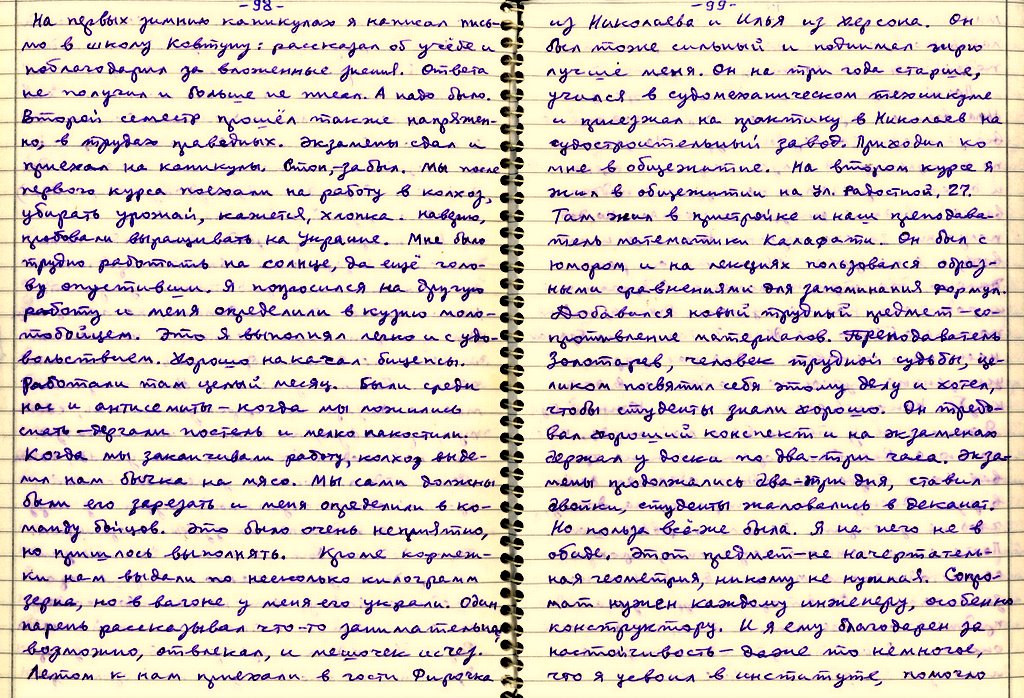 -98-
На первых зимних каникулах я написал пись-
мо в школу Ковтуну: рассказал об учёбе и
поблагодарил за вложенные знения. Ответа
не получил и больше не писал. А надо было.
Второй семестр прошёл также напряжен-
но, в трудах праведных. Экзамены сдал и
приехал на каникулы. Стоп, забыл. Мы после
первого курса поехали на работу в колхоз,
убирать урожай, кажется, хлопка.
пробовали выращивать на Украине. Мне было
трудно работать на солнце, да ещё голо-
ву опустивши. Я попросился на другую
работу и меня определили в кузню моло-
тобойцем. Это я выполнял легко и с удо-
вольствием. Хорошо накачал бицепсы.
Работали там целый месяц. Были среди
нас и антисемиты – когда мы ложились
спать – дергали постель и мелко пакостили.
Когда мы заканчивали работу, колхоз выде-
лил нам бычка на мясо. Мы сами должны
были его зарезать и меня определили в ко-
манду бойцов. Это было очень неприятно,
но пришлось выполнять. Кроме кормеж-
ки нам выдали по несколько килограмм
зерна, но в вагоне у меня его украли. Один
парень рассказывал что-то занимательное,
возможно, отвлекал, и мешочек исчез.
Летом к нам приехали в гости Фирочка
-99-
из Николаева и Илья из Херсона. Он
был тоже сильный и поднимал гирю
лучше меня. Он на три года старше,
учился в судомеханическом техникуме
и приезжал на практику в Николаев на
судостроительный завод. Приходил ко
мне в общежитие. На втором курсе я
жил в общежитии на ул. Радостной, 27.
Там жил в пристройке и наш преподава-
тель математики Калафати. Он был с
юмором и на лекциях пользовался образ-
ными сравнениями для запоминания формул.
Добавился новый трудный предмет – со-
противление материалов. Преподаватель
Золотарев, человек трудной судьбы, це-
ликом посвятил себя этому делу и хотел,
чтобы студенты знали хорошо. Он требо-
вал хороший конспект и на экзаменах
держал у доски по два-три часа. Экза-
мены продолжались два-три дня, ставил
двойки, студенты жаловались в деканат.
Но польза всё же была. Я на него не в
обиде. Этот предмет – не начертатель-
ная геометрия, никому не нужная. Сопро-
мат нужен каждому инженеру, особенно
конструктору. И я ему благодарен за
настойчивость – даже то немногое,
что я усвоил в институте, помогло